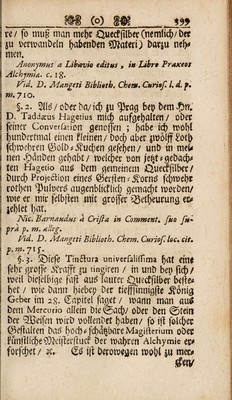 (o) 399
re/ so muß man mehr Quecksilber (nemlich/ der
zu verwandeln habenden Materi) darzu neh-
men.
Anonymus a Libavio editus, in Libro Praxeos
Alchymiæ c. 18.
Vid. D. Mangeti Biblioth. Chem. Curios. l. d. p.
m. 710.
§. 2. Als/ oder da/ ich zu Prag bey dem Hn.
D. Taddæus Hagetius mich aufgehalten/ oder
seiner Conversation genossen; habe ich wohl
hundertmal einen kleinen/ doch aber zwölf Loth
schwehren Gold-Kuchen gesehen/ und in mei-
nen Händen gehabt/ welcher von jetzt-gedach-
tem Hagetio aus dem gemeinem Quecksilber/
durch Projection eines Gersten-Korns schwehr
rothen Pulvers augenblicklich gemacht worden/
wie er mir selbsten mit grosser Betheurung er-
zehlet hat.
Nic. Barnaudus à Crista in Comment. suo su-
prà p. m. alleg.
Vid. D. Mangeti Biblioth. Chem. Curios. loc. cit.
p. m. 715.
§. 3. Diese Tinctura universalissima hat eine
sehr grosse Krafft zu tingiren/ in und bey sich/
weil dieselbige fast aus lauter Quecksilber beste-
het/ wie dann hiebey der tieffsinnigste König
Geber im 28. Capitel saget/ wann man aus
dem Mercurio allein die Sach/ oder den Stein
der Weisen wird vollendet haben/ so ist solcher
Gestalten das hoch-schätzbare Magisterium oder
künstliche Meisterstuck der wahren Alchymie er-
forschet/ ꝛc. Es ist derowegen wohl zu mer-
cken/